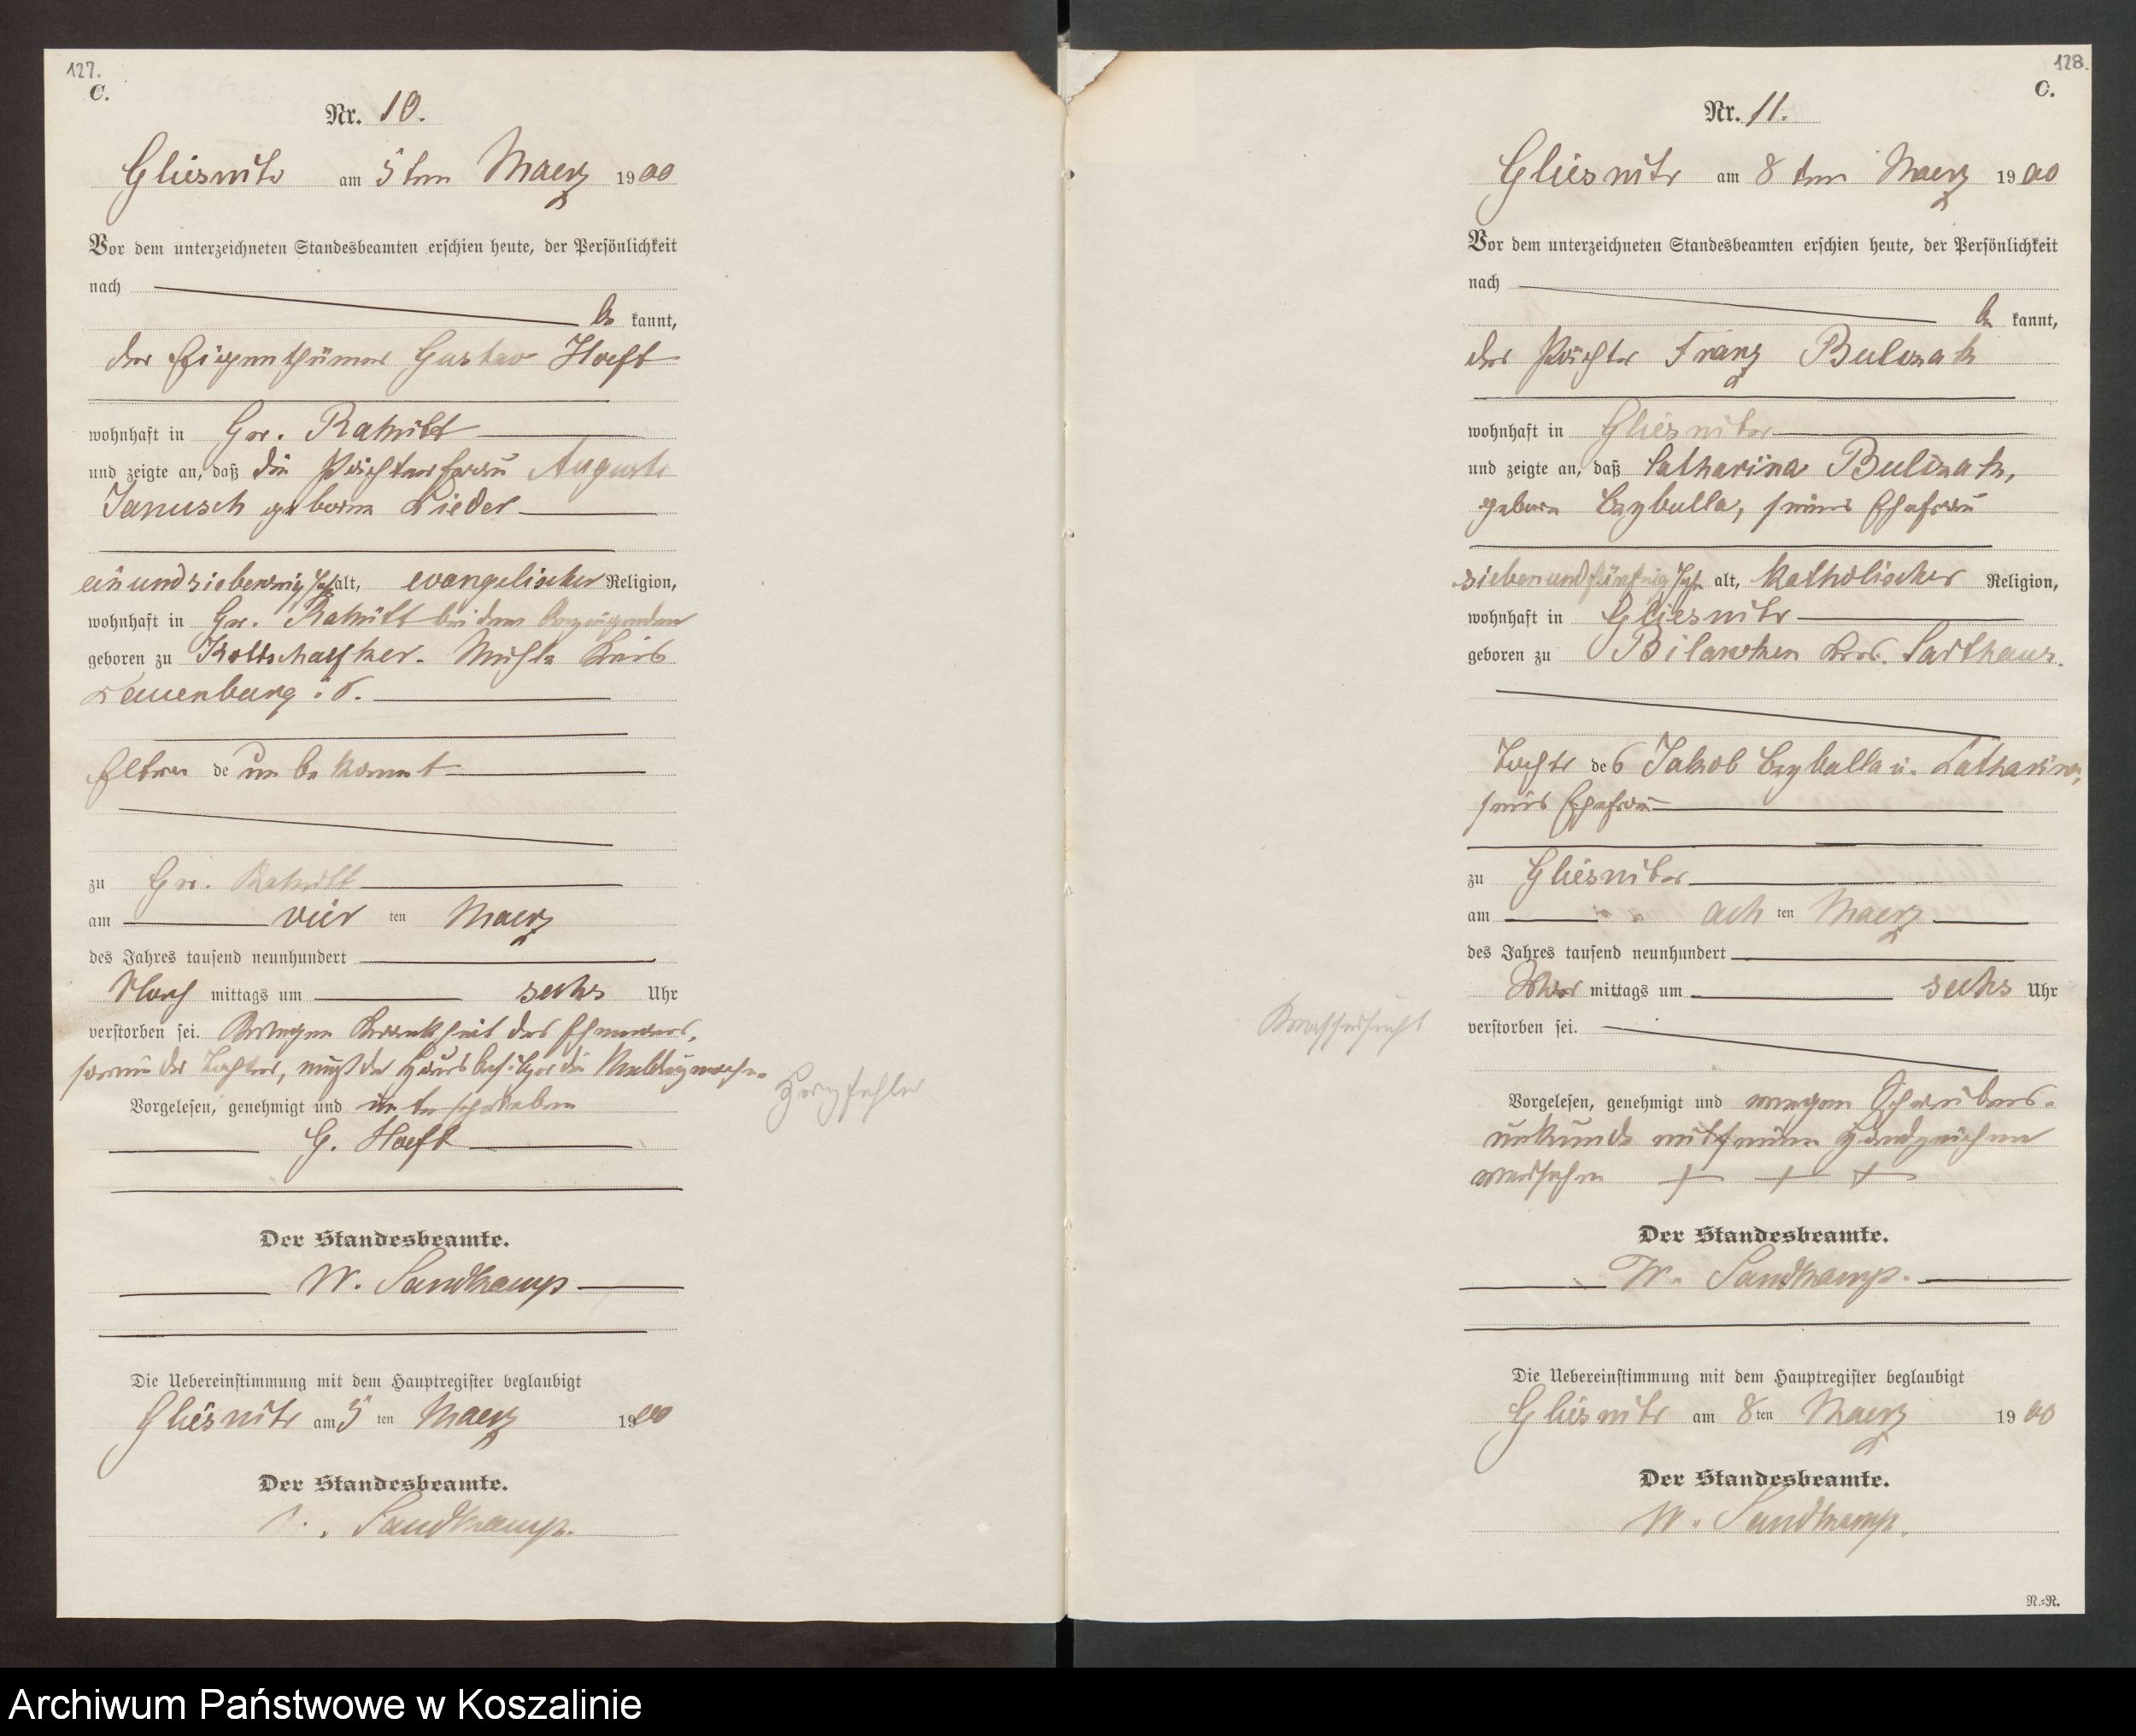 127.
C.
Nr. 10.
Gliesnitz am 5 ten Maerz 1900
Vor dem unterzeichneten Standesbeamten erschien heute, der Persönlichkeit
nach
be kannt,
der Eigenthümer Gustav Hoeft
wohnhaft in Gr. Rakitt
und zeigte an, daß die Pächterfrau Auguste
Janusch geborne Lieder
einundsiebenzig Jahr alt, evangelischer Religion,
wohnhaft in Gr. Rakitt bei dem Anzeigenden
geboren zu Mühle Kreis
Lauenburg
Eltern de unbekannt
zu Gr. Rakitt
am vier ten Maerz
des Jahres tausend neunhundert
Nach mittags um sechs Uhr
verstorben sei. Wegen Krankheit des Ehemanns,
sowie der Tochter, mußte der Hausbesitzer die Meldung machen
Vorgelesen, genehmigt und unterschrieben
G. Hoeft
Der Standesbeamte.
W. Sandkamp
Die Uebereinstimmung mit dem Hauptregister beglaubigt
Gliesnitz am 5 ten Maerz 1900
Der Standesbeamte.
W. Sandkamp.
Herzfehler
128.
C.
Nr. 11.
Gliesnitz am 8 ten Maerz 1900
Vor dem unterzeichneten Standesbeamten erschien heute, der Persönlichkeit
nach
be kannt,
der Pächter Franz Bulczak
wohnhaft in Gliesnitz
und zeigte an, daß Catharina Bulczak,
geborn Czyballa, seine Ehefrau
siebenundfünfzig Jahr alt, katholischer Religion,
wohnhaft in Gliesnitz
geboren zu Bilawken Krs. Carthaus.
Tochter des Jakob Czyballa u. Catharina,
seine Ehefrau
zu Gliesnitz
am ach ten Maerz
des Jahres tausend neunhundert
Vor mittags um sechs Uhr
verstorben sei.
Vorgelesen, genehmigt und wegen Schreibens-
unkunde mit seinem Handzeichen
versehen + + +
Der Standesbeamte.
W. Sandkamp.
Die Uebereinstimmung mit dem Hauptregister beglaubigt
Gliesnitz am 8 ten Maerz 1900
Der Standesbeamte.
W. Sandkamp.
N.=R.
Archiwum Państwowe w Koszalinie